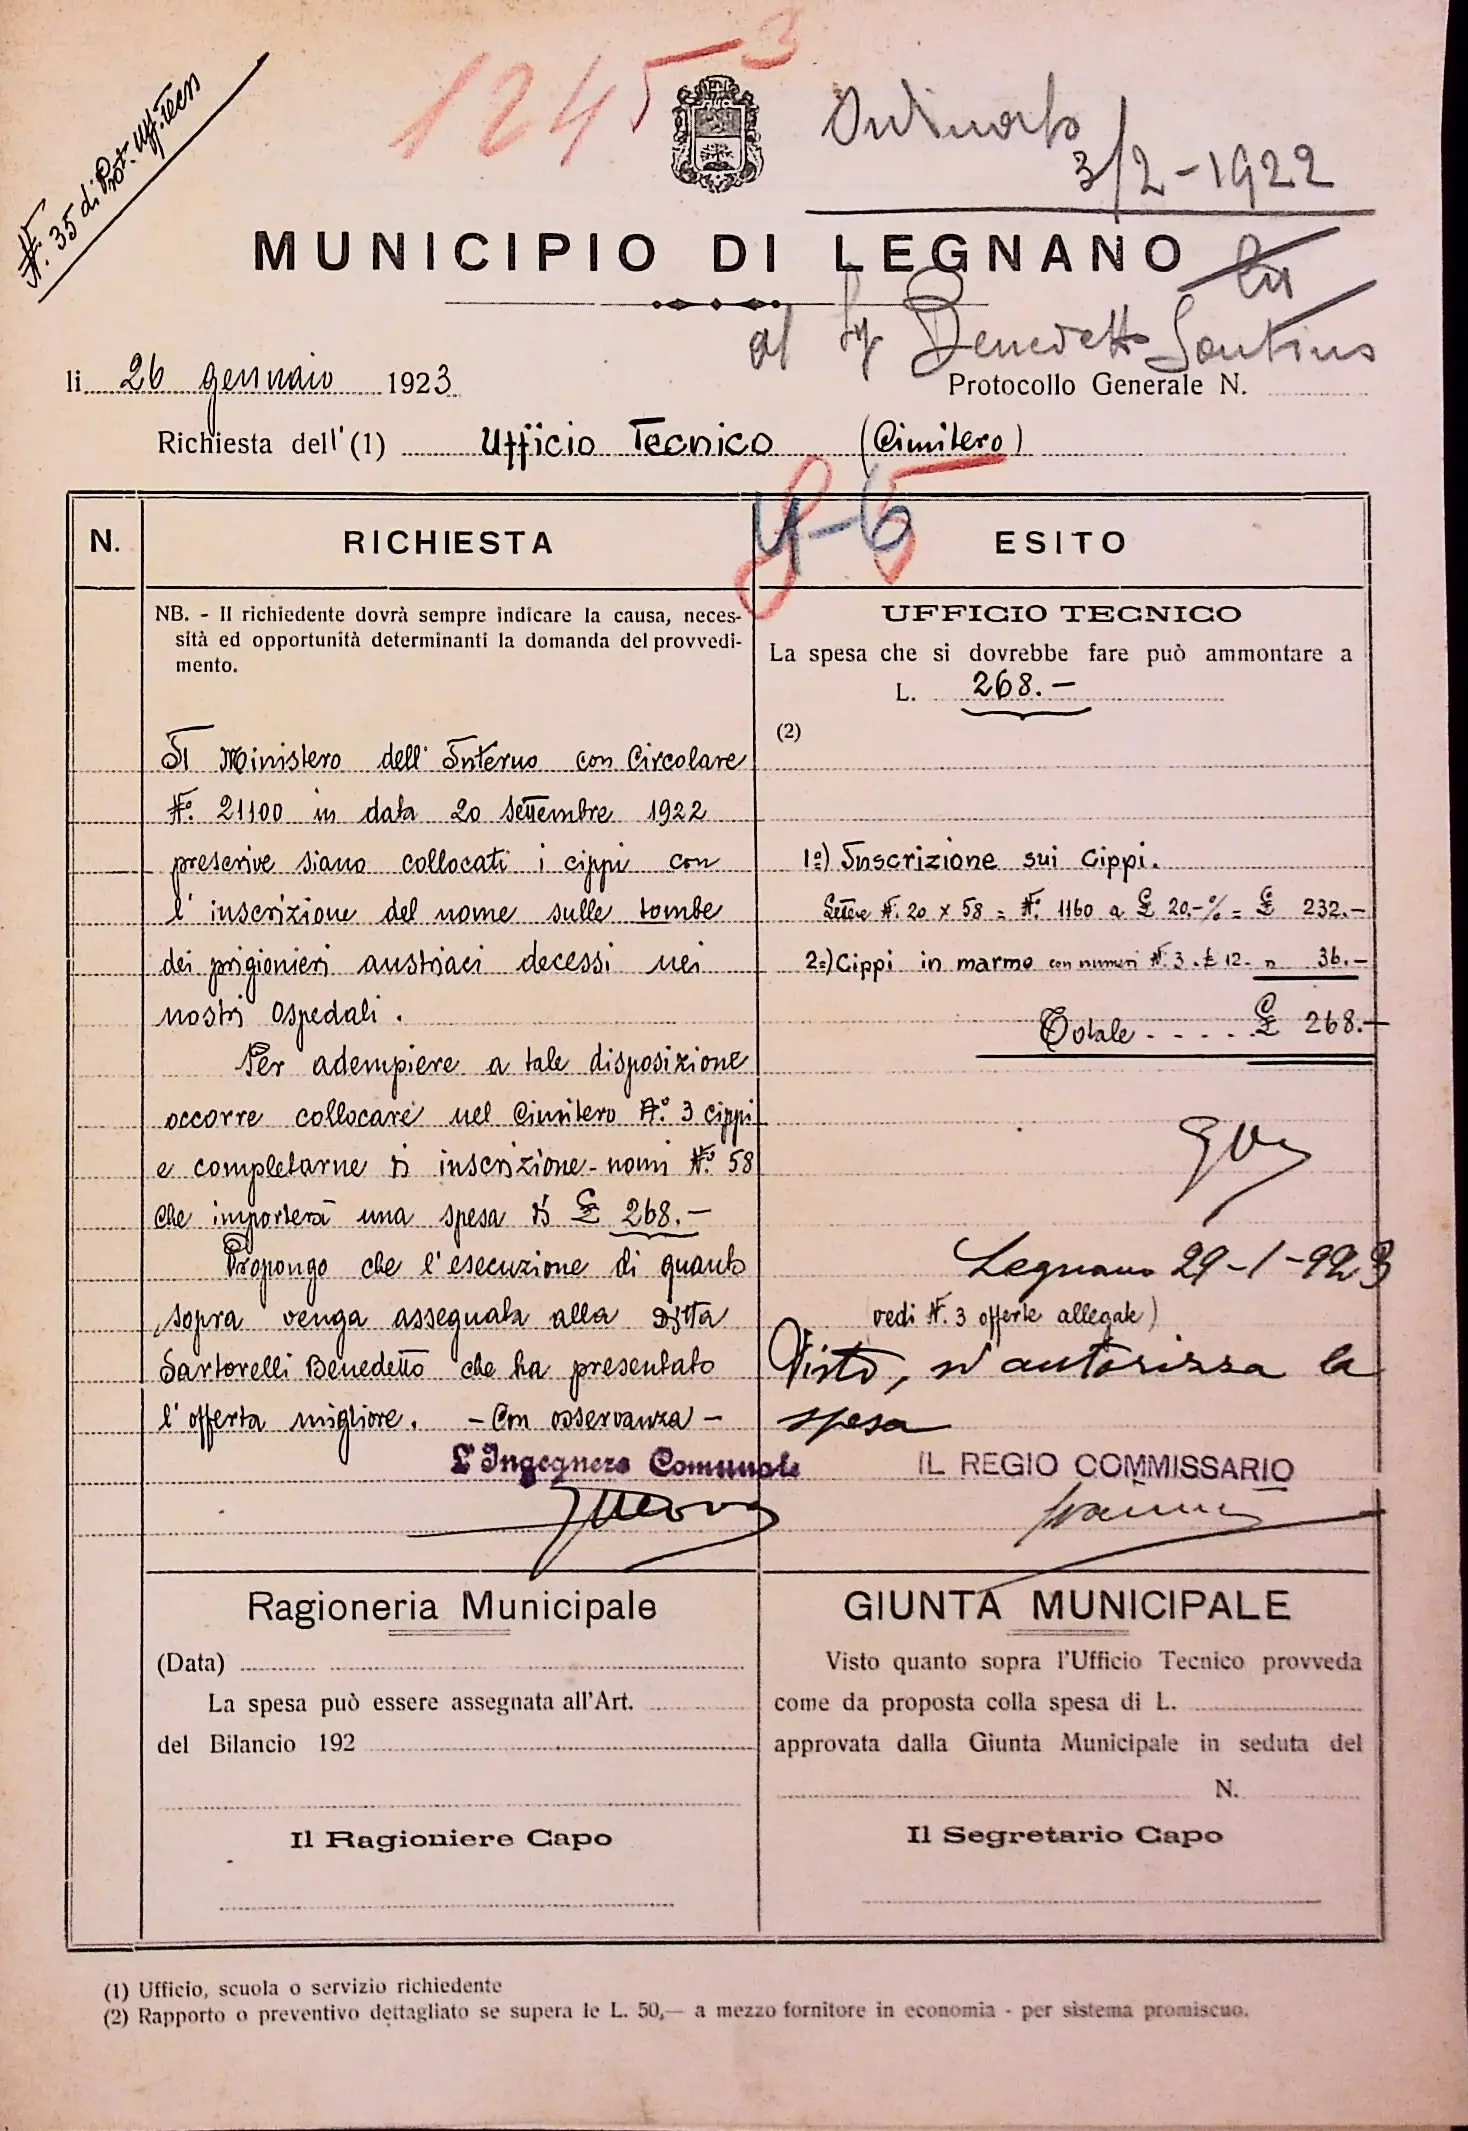 N. 35 di Prot. Uff. Tecn
1245 3
Ordinato
3/2-1922
MUNICIPIO DI LEGNANO
al Sig Benedetto
li 26 gennaio 1923
Protocollo Generale N.
Richiesta dell'(1) Ufficio Tecnico (Cimitero)
N.
RICHIESTA
ESITO
NB. - Il richiedente dovrà sempre indicare la causa, neces-
sità ed opportunità determinanti la domanda del provvedi-
mento.
Il Ministero dell'Interno con Circolare
N.° 21100 in data 20 Settembre 1922
prescrive siano collocati i cippi con
l'inscrizione del nome sulle tombe
dei prigionieri austriaci decessi nei
nostri Ospedali.
Per adempiere a tale disposizione
occorre collocare nel Cimitero N.° 3 cippi
e completarne di inscrizione-nomi N.° 58
che importerà una spesa di £ 268.-
Propongo che l'esecuzione di quanto
sopra venga assegnata alla Ditta
Sartorelli Benedetto che ha presentato
l'offerta migliore. - Con osservanza -
L'Ingegnere Comunale
UFFICIO TECNICO
La spesa che si dovrebbe fare può ammontare a
L. 268.-
(2)
1°) Inscrizione sui Cippi.
Lettere N. 20 x 58 = N.° 1160 a £ 20.-% = £ 232.-
2°) Cippi in marmo con numeri N.° 3 . £ 12- " 36.-
Totale - - - - - £ 268.-
Legnano 29-1-923
(vedi N. 3 offerte allegate)
Visto, si autorizza la
spesa
IL REGIO COMMISSARIO
Ragioneria Municipale
(Data)
La spesa può essere assegnata all'Art.
del Bilancio 192
Il Ragioniere Capo
GIUNTA MUNICIPALE
Visto quanto sopra l'Ufficio Tecnico provveda
come da proposta colla spesa di L.
approvata dalla Giunta Municipale in seduta del
N.
Il Segretario Capo
(1) Ufficio, scuola o servizio richiedente
(2) Rapporto o preventivo dettagliato se supera le L. 50,— a mezzo fornitore in economia - per sistema promiscuo.